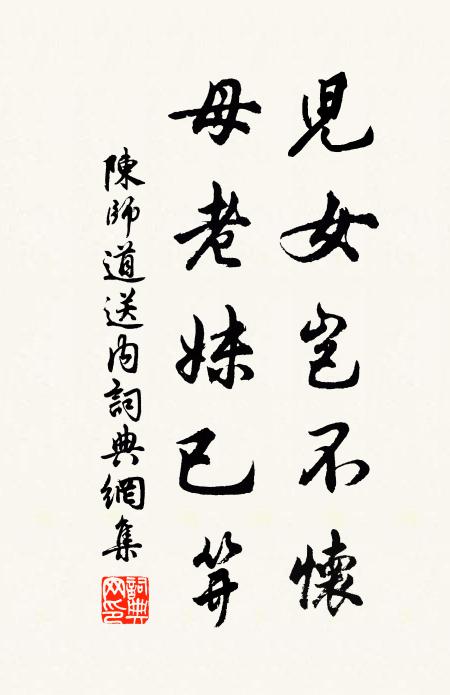 兒女豈不懷
母老妹已笄
陳師道送內詞典網集
詞典網印